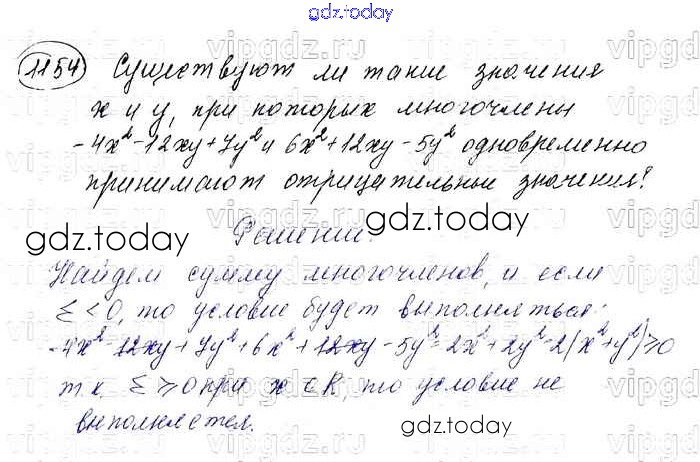 gdz.today
1154 Существуют ли такие значения
x и y, при которых многочлены
-4x²-12xy+7y² и 6x²+12xy-5y² одновременно
принимают отрицательные значения?
gdz.today gdz.today
Решение:
Найдем сумму многочленов, и если
Σ<0, то условие будет выполняться:
-4x²-12xy+7y²+6x²+12xy-5y²=2x²+2y²=2(x²+y²)≥0
т.к. Σ≥0 при x∈R, то условие не
выполняется.
gdz.today